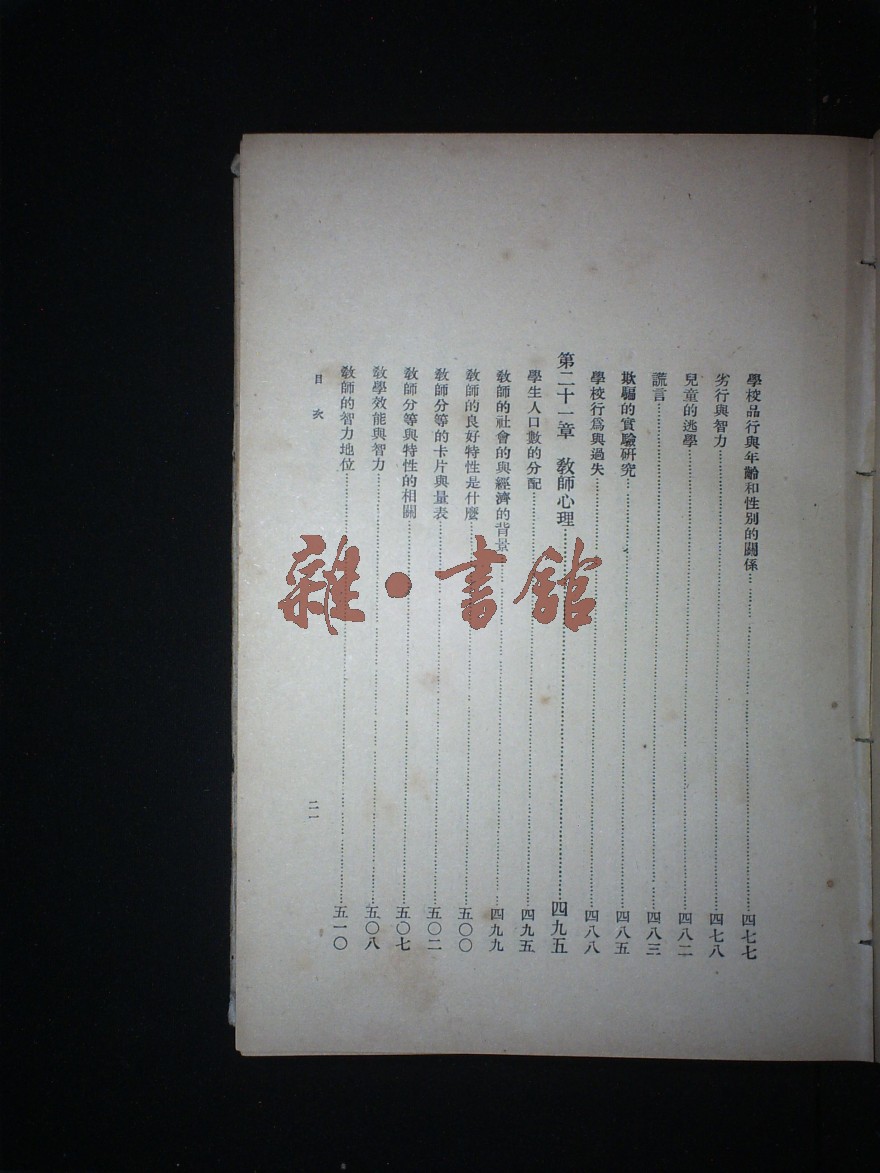 學校品行與年齡和性別的關係……四七七
劣行與智力……四七八
兒童的逃學……四八二
謊言……四八三
欺騙的實驗研究……四八五
學校行爲與過失……四八八
第二十一章　教師心理……四九五
學生人口數的分配……四九五
教師的社會的與經濟的背景……四九九
教師的良好特性是什麼……五〇〇
教師分等的卡片與量表……五〇二
教師分等與特性的相關……五〇七
教學效能與智力……五〇八
教師的智力地位……五一〇
目次
二一
雜·書館